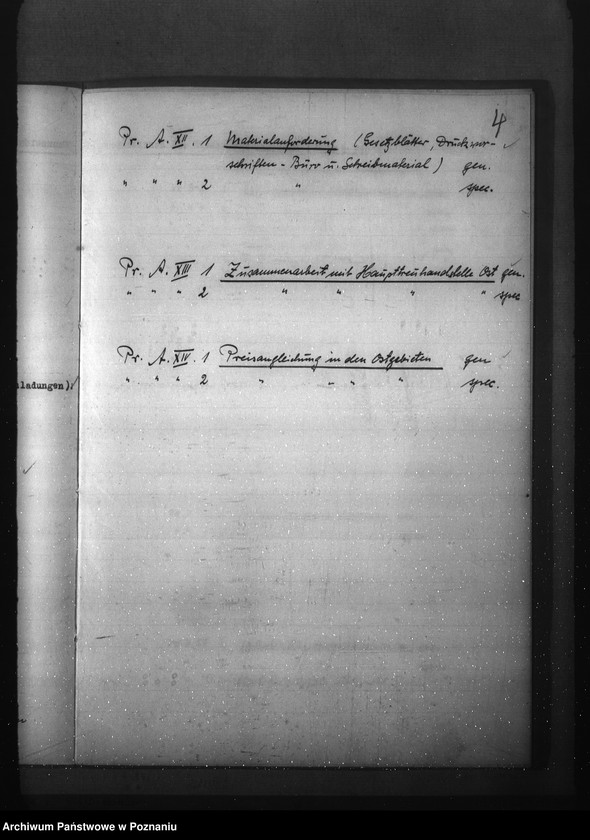 4
Pr. A. XII. 1 Materialanforderung (Gesetzblätter, Druckvor-
schriften - Büro u. Schreibmaterial) gen.
" " " 2 " spec.
Pr. A. XIII 1 Zusammenarbeit mit Haupttreuhandstelle Ost gen.
" " " 2 " " " " spec
Pr. A. XIV. 1 Preisangleichung in den Ostgebieten gen
" " " 2 " " " " spec.
ladungen)
Archiwum Państwowe w Poznaniu